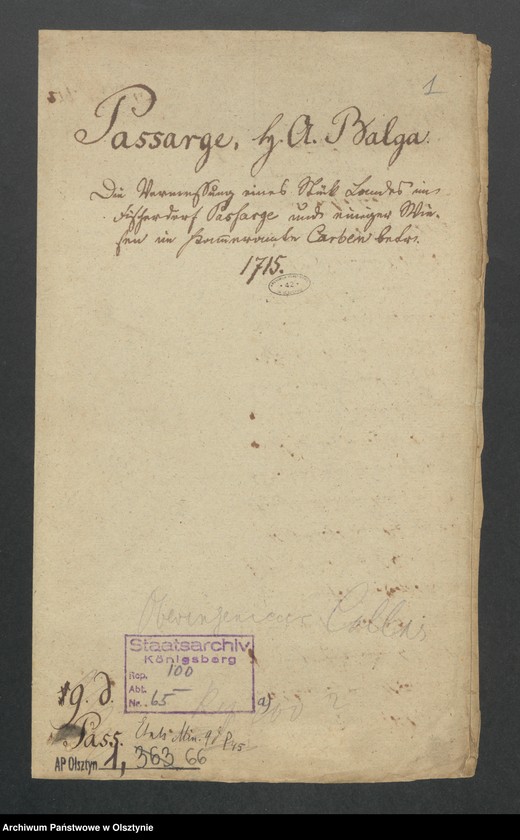 1
Passarge, H. A. Balga.
Die Vermessung eines Stük Landes im
Fischerdorf Passarge und einiger Wie-
sen im Kammeramte Carben betr.
1715.
Staatsarchiv
Königsberg
Rep. 100
Abt.
Nr. 65
a)
19. d.
Pass.
Etats Min. 98 P 45
AP Olsztyn 1, 363 66
Archiwum Państwowe w Olsztynie